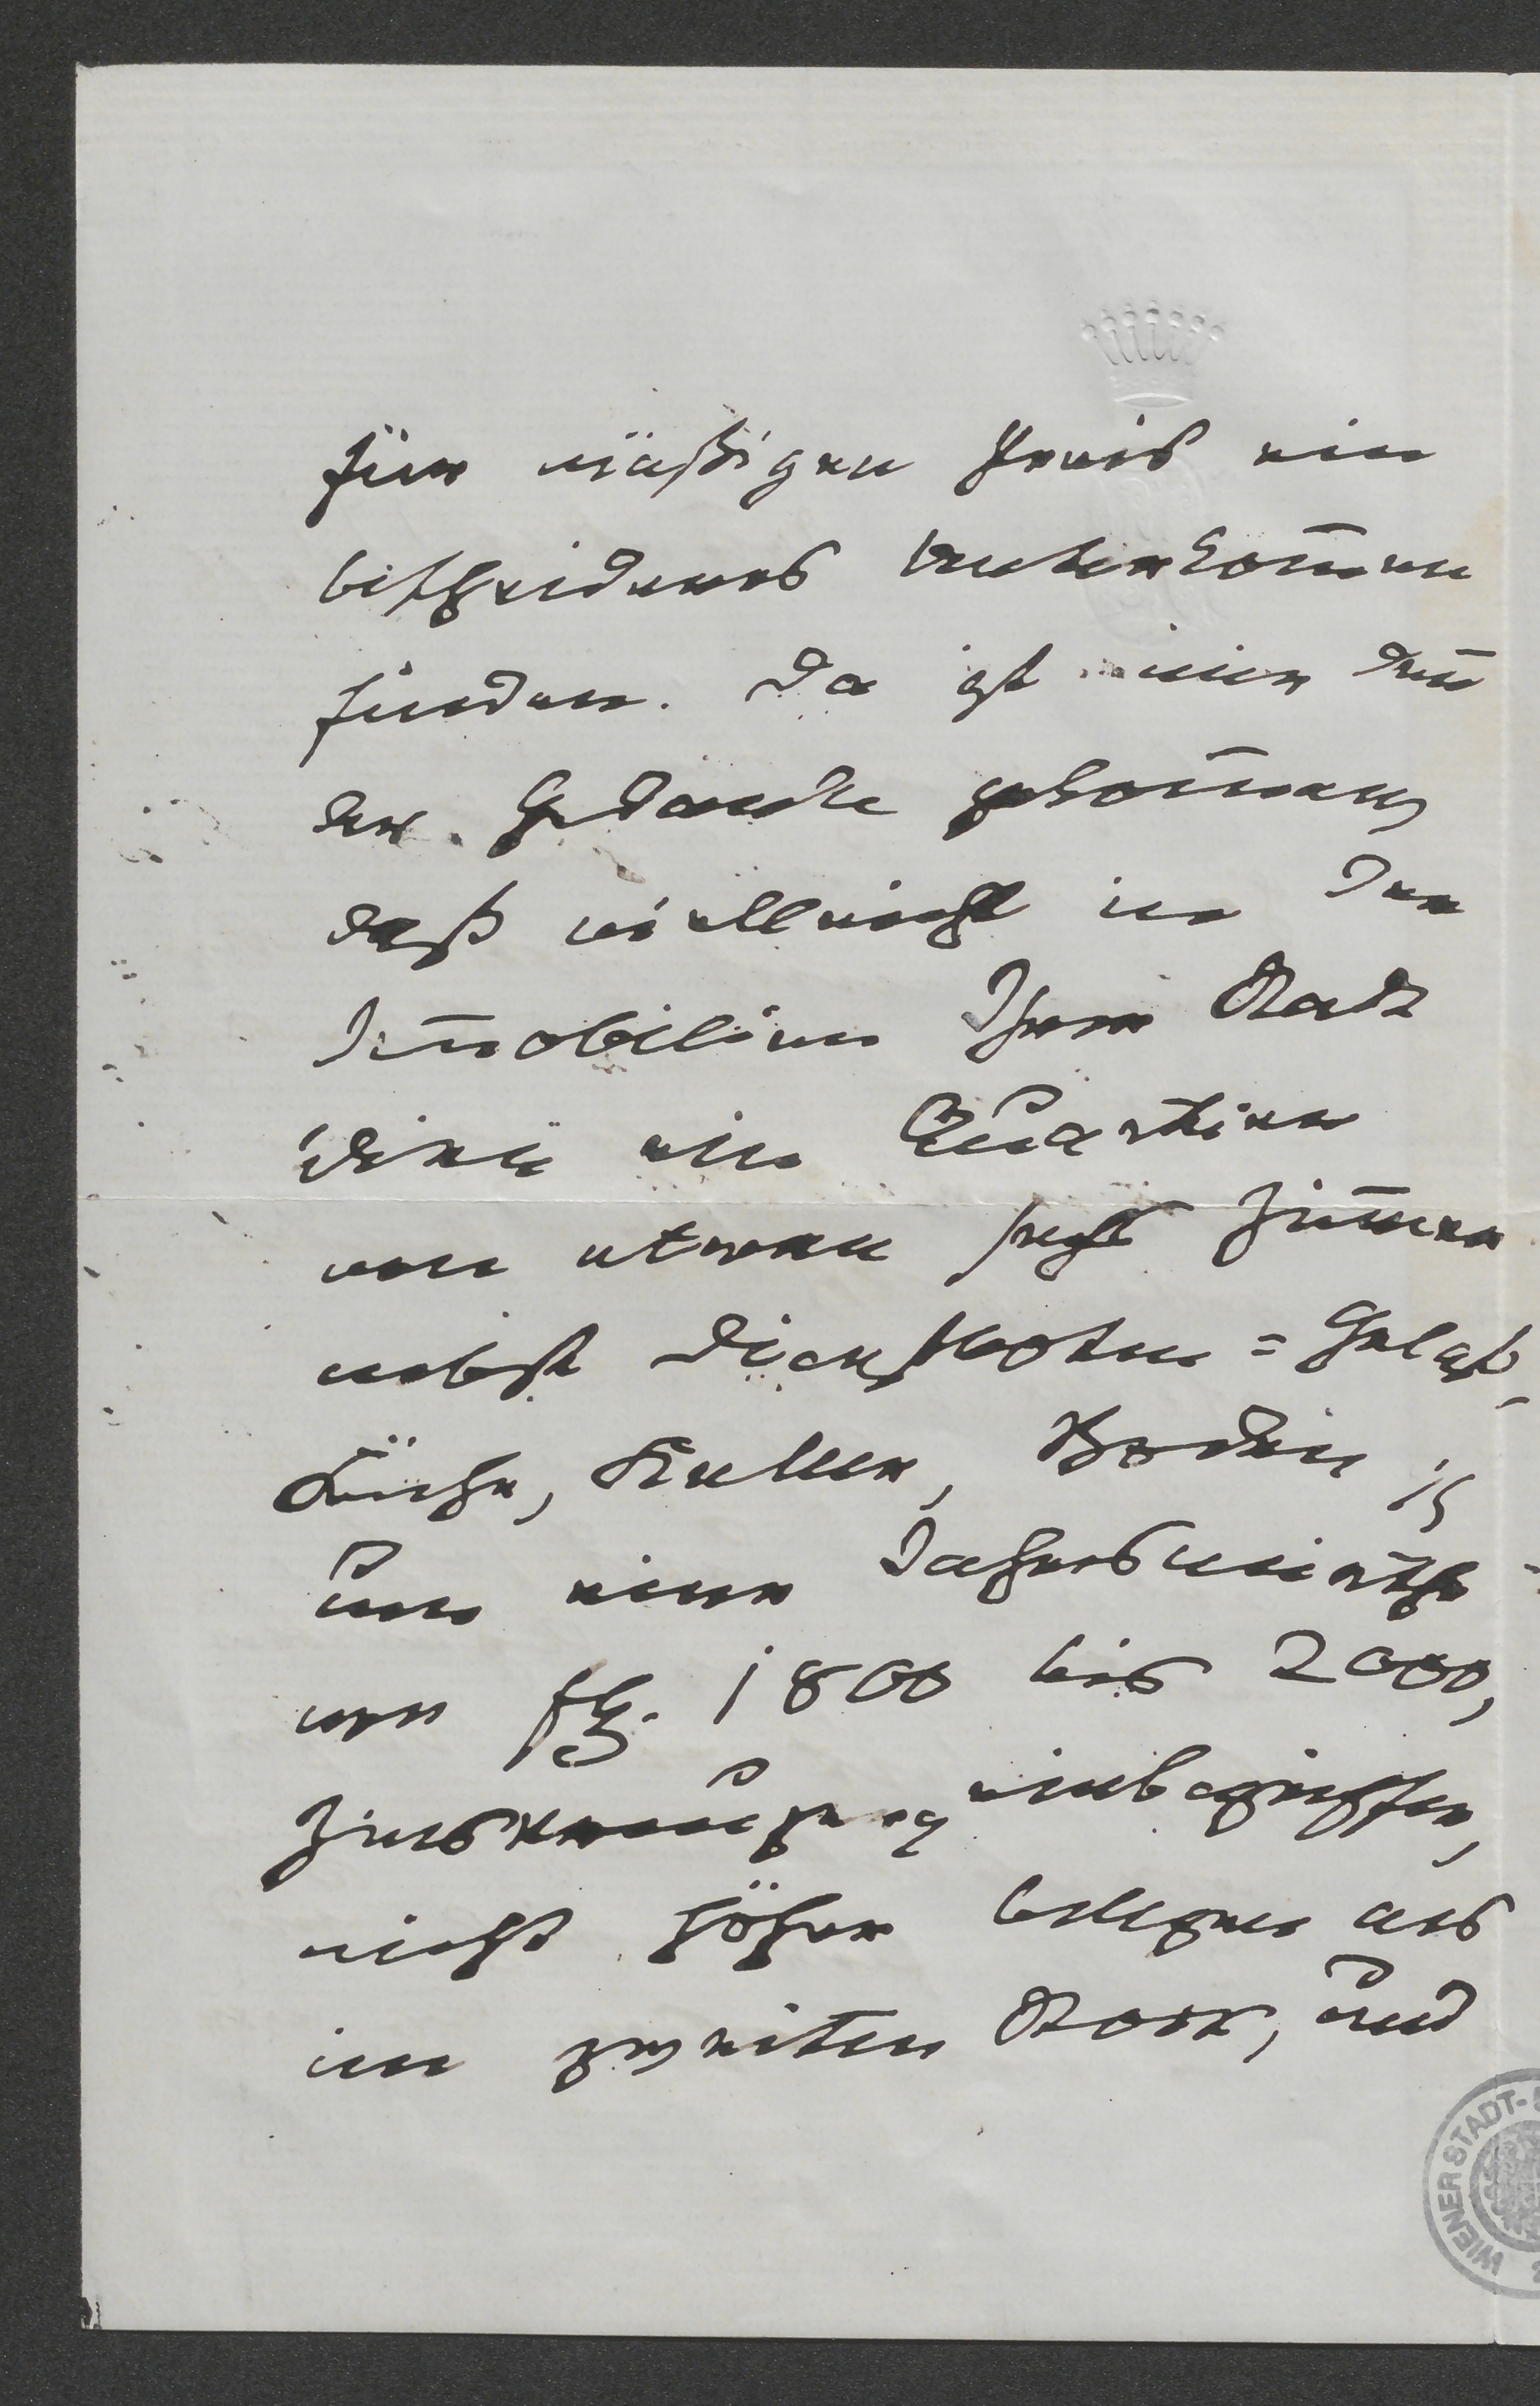 für mäßigen Preis ein
bescheidenes Unterkom̅en
finden. Da ist mir den̅
der Gedanke gekom̅en,
daß vielleicht in den
Im̅obilien Ihrer Stadt
Wien ein Quartier
von etwan sechs Zim̅ern
nebst Dienstboten=Gelaß,
Küche, Keller, Boden
um einen Jahresmiethe
von fl. 1800 bis 2000,
einbegriffen,
nicht höher belegen als
im zweiten Stock, und
WIENER STADT-